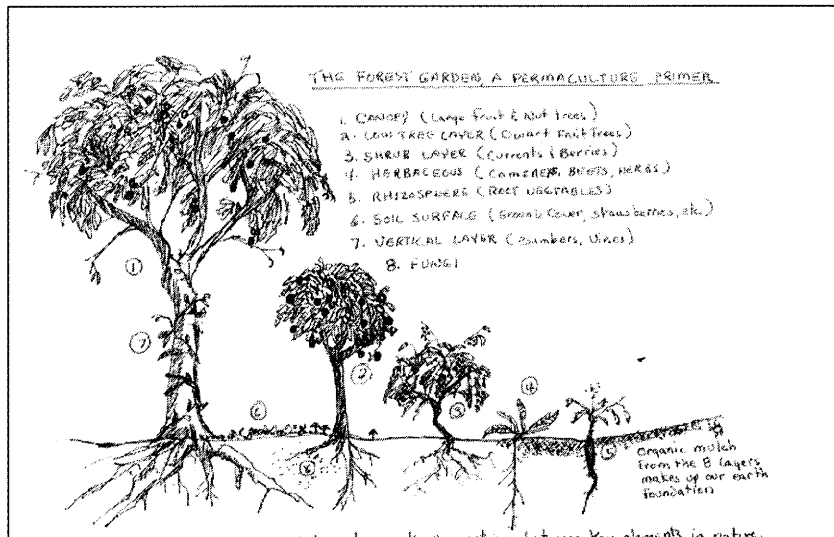 THE FOREST GARDEN, A PERMACULTURE PRIMER
1. CANOPY (Large Fruit & Nut Trees)
2. LOW TREE LAYER (Dwarf Fruit Trees)
3. SHRUB LAYER (Currents & Berries)
4. HERBACEOUS (Comfreys, BEETS, HERBS)
5. RHIZOSPHERE (ROOT VEGETABLES)
6. SOIL SURFACE (Ground Cover, strawberries, etc)
7. VERTICAL LAYER (Climbers, Vines)
8. FUNGI
1
7
6
2
3
4
8
5
Organic mulch
from the 8 layers
makes up our earth
foundation
between key elements in nature.